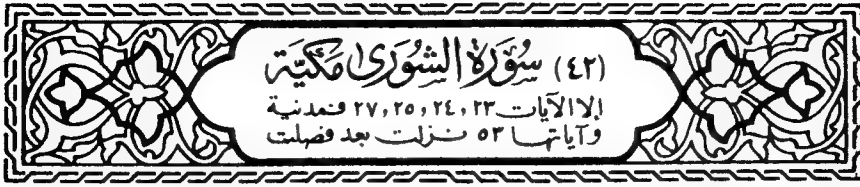 (٤٢) سُورَةُ الشُّورَىٰ مَكِّيَّة
إلا الآيات ٢٣، ٢٤، ٢٥، ٢٧ فمدنية
وآياتها ٥٣ نزلت بعد فصلت